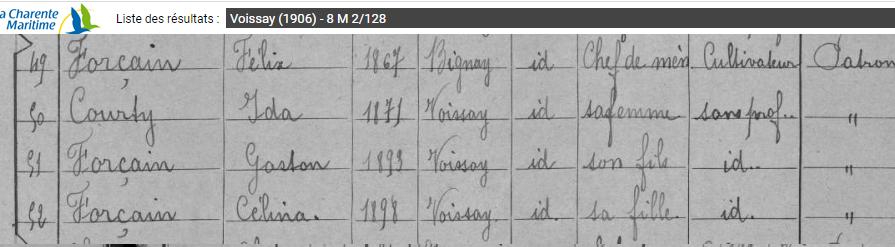 la Charente
Maritime
Liste des résultats : Voissay (1906) - 8 M 2/128
49 Forçain Félix 1867 Bignay id Chef de mén Cultivateur Patron
50 Courty Ida 1871 Voissay id sa femme sans prof.. "
51 Forçain Gaston 1893 Voissay id son fils id.. "
52 Forçain Célina. 1898 Voissay. id. sa fille id. "